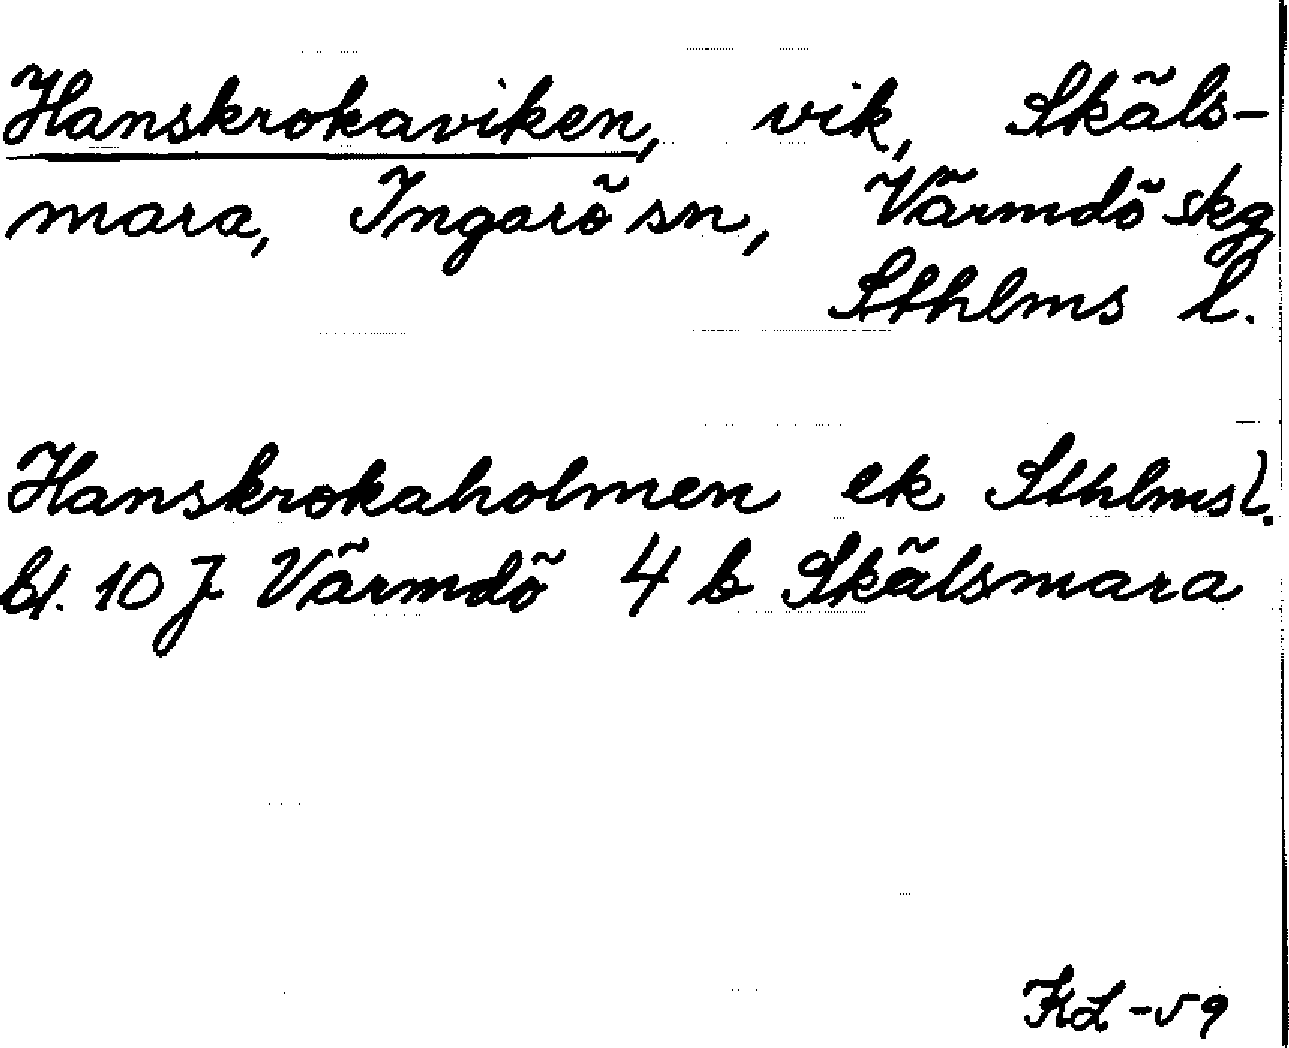 Hanskrokaviken, vik, Skäls-
mara, Ingarö sn, Värmdö skg
Sthlms l.
Hanskrokaholmen ek Sthlms l.
bl. 10 J Värmdö 4 b Skälsmara
KL -59